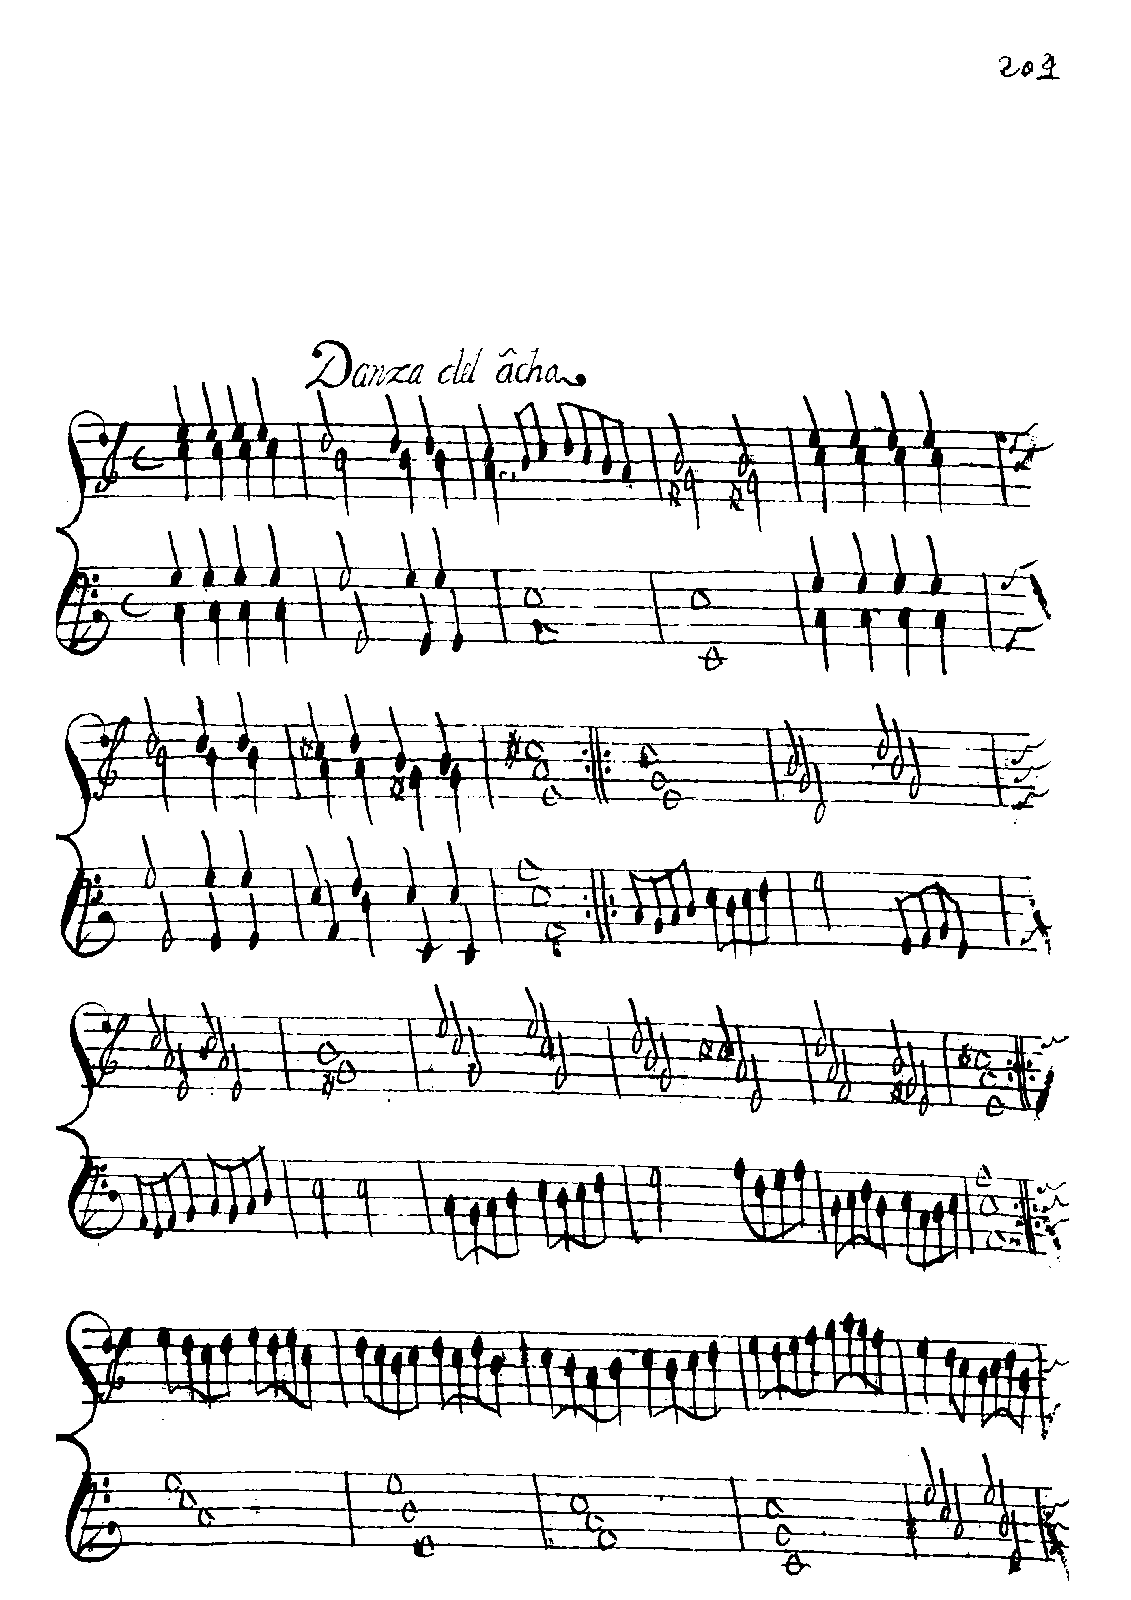 209
Danza del âcha